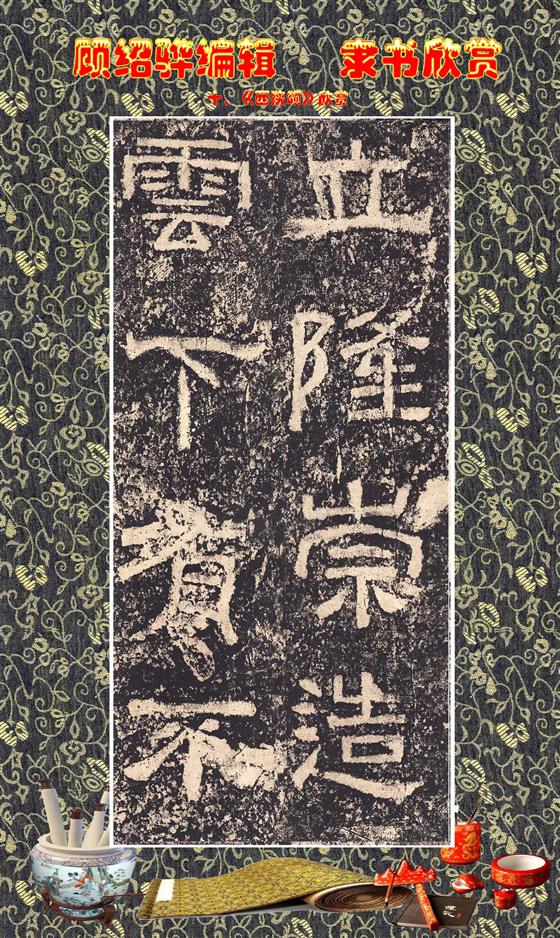 顾绍骅编辑 隶书欣赏
十、《西狭颂》欣赏
立隆崇造
雲下有不